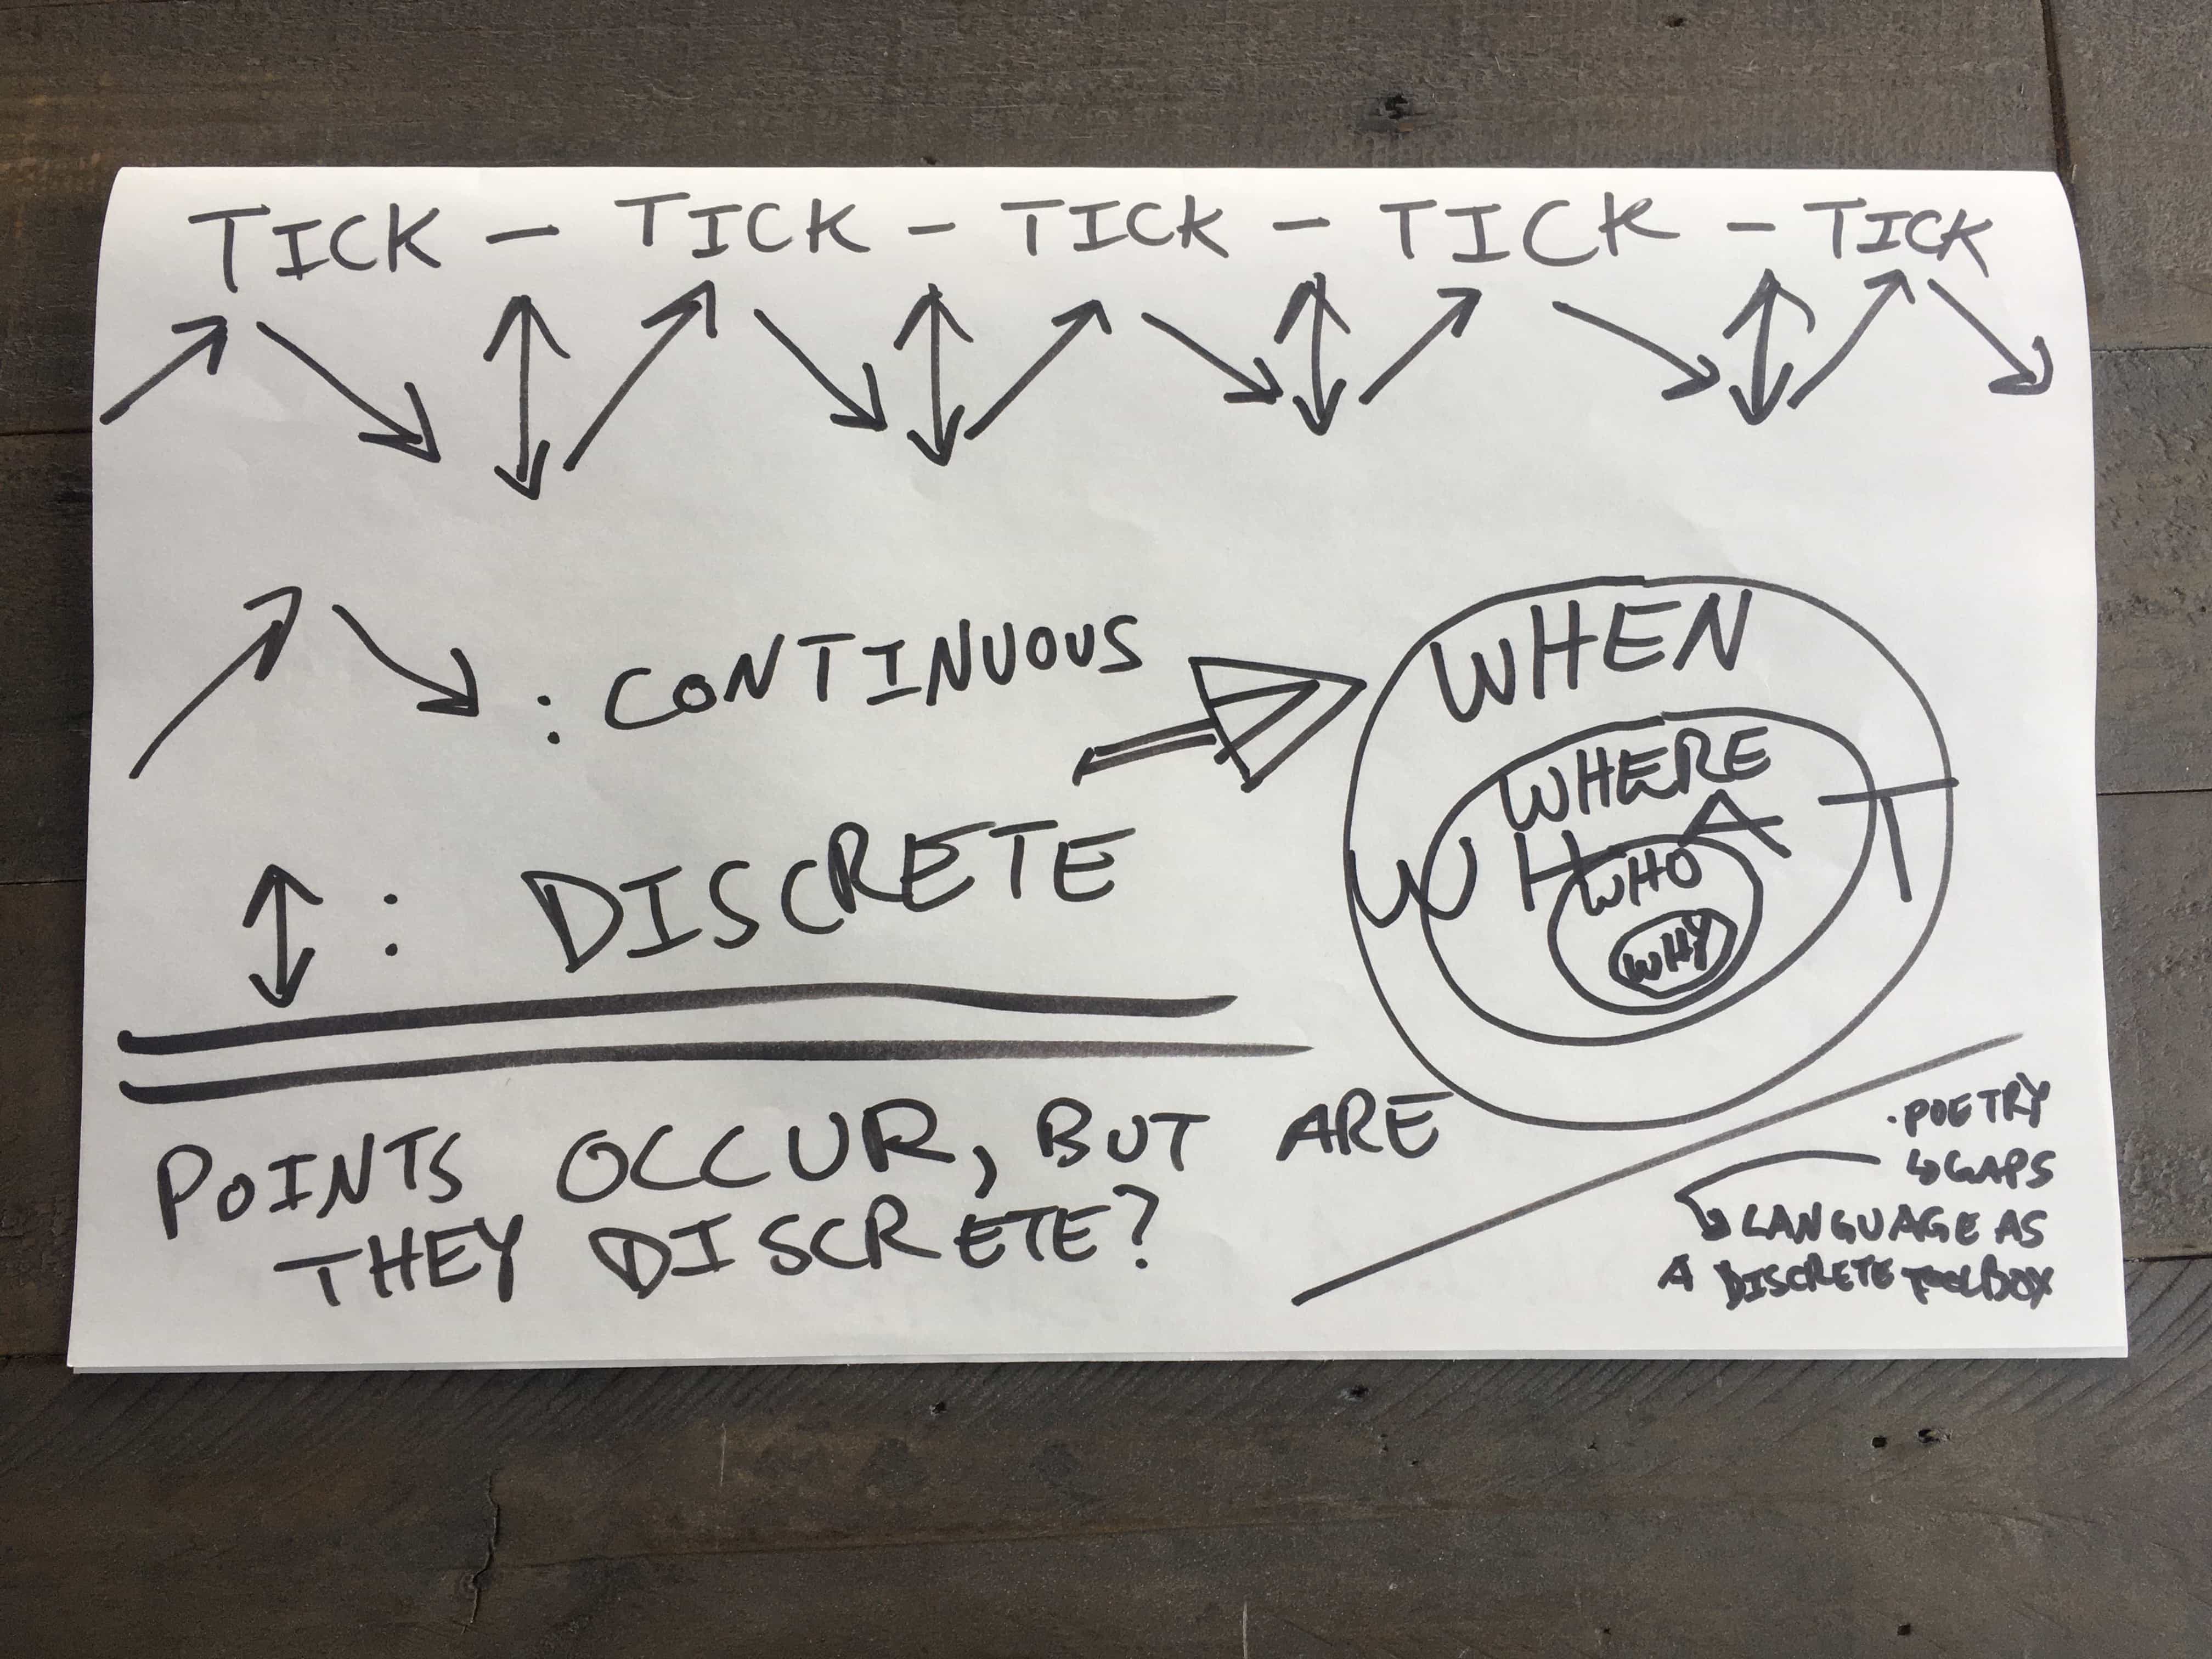 TICK – TICK – TICK – TICK – TICK
: CONTINUOUS
: DISCRETE
WHEN
WHERE
WHAT
WHO
WHY
POINTS OCCUR, BUT ARE
THEY DISCRETE?
· POETRY
↳ GAPS
↳ LANGUAGE AS
A DISCRETE TOOLBOX